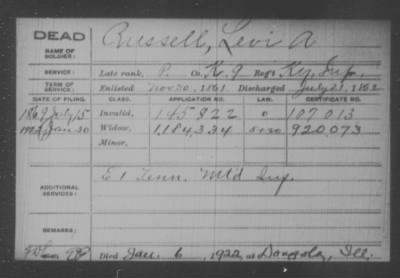 DEAD
NAME OF SOLDIER:
Russell, Levi A
SERVICE:
Late rank, P. Co. K. 9 Reg't Ky. Inf.
TERM OF SERVICE:
Enlisted Nov 30, 1861 Discharged July 21, 1862
DATE OF FILING. CLASS. APPLICATION NO. LAW. CERTIFICATE NO.
1869 July 15 Invalid, 145822 0 107013
Jan 30 Widow, 1,184,334 920,073
Minor,
ADDITIONAL SERVICES:
E 1 Tenn. Mtd Inf.
REMARKS:
Died Jan. 6, 1922, at Dongola, Ill.